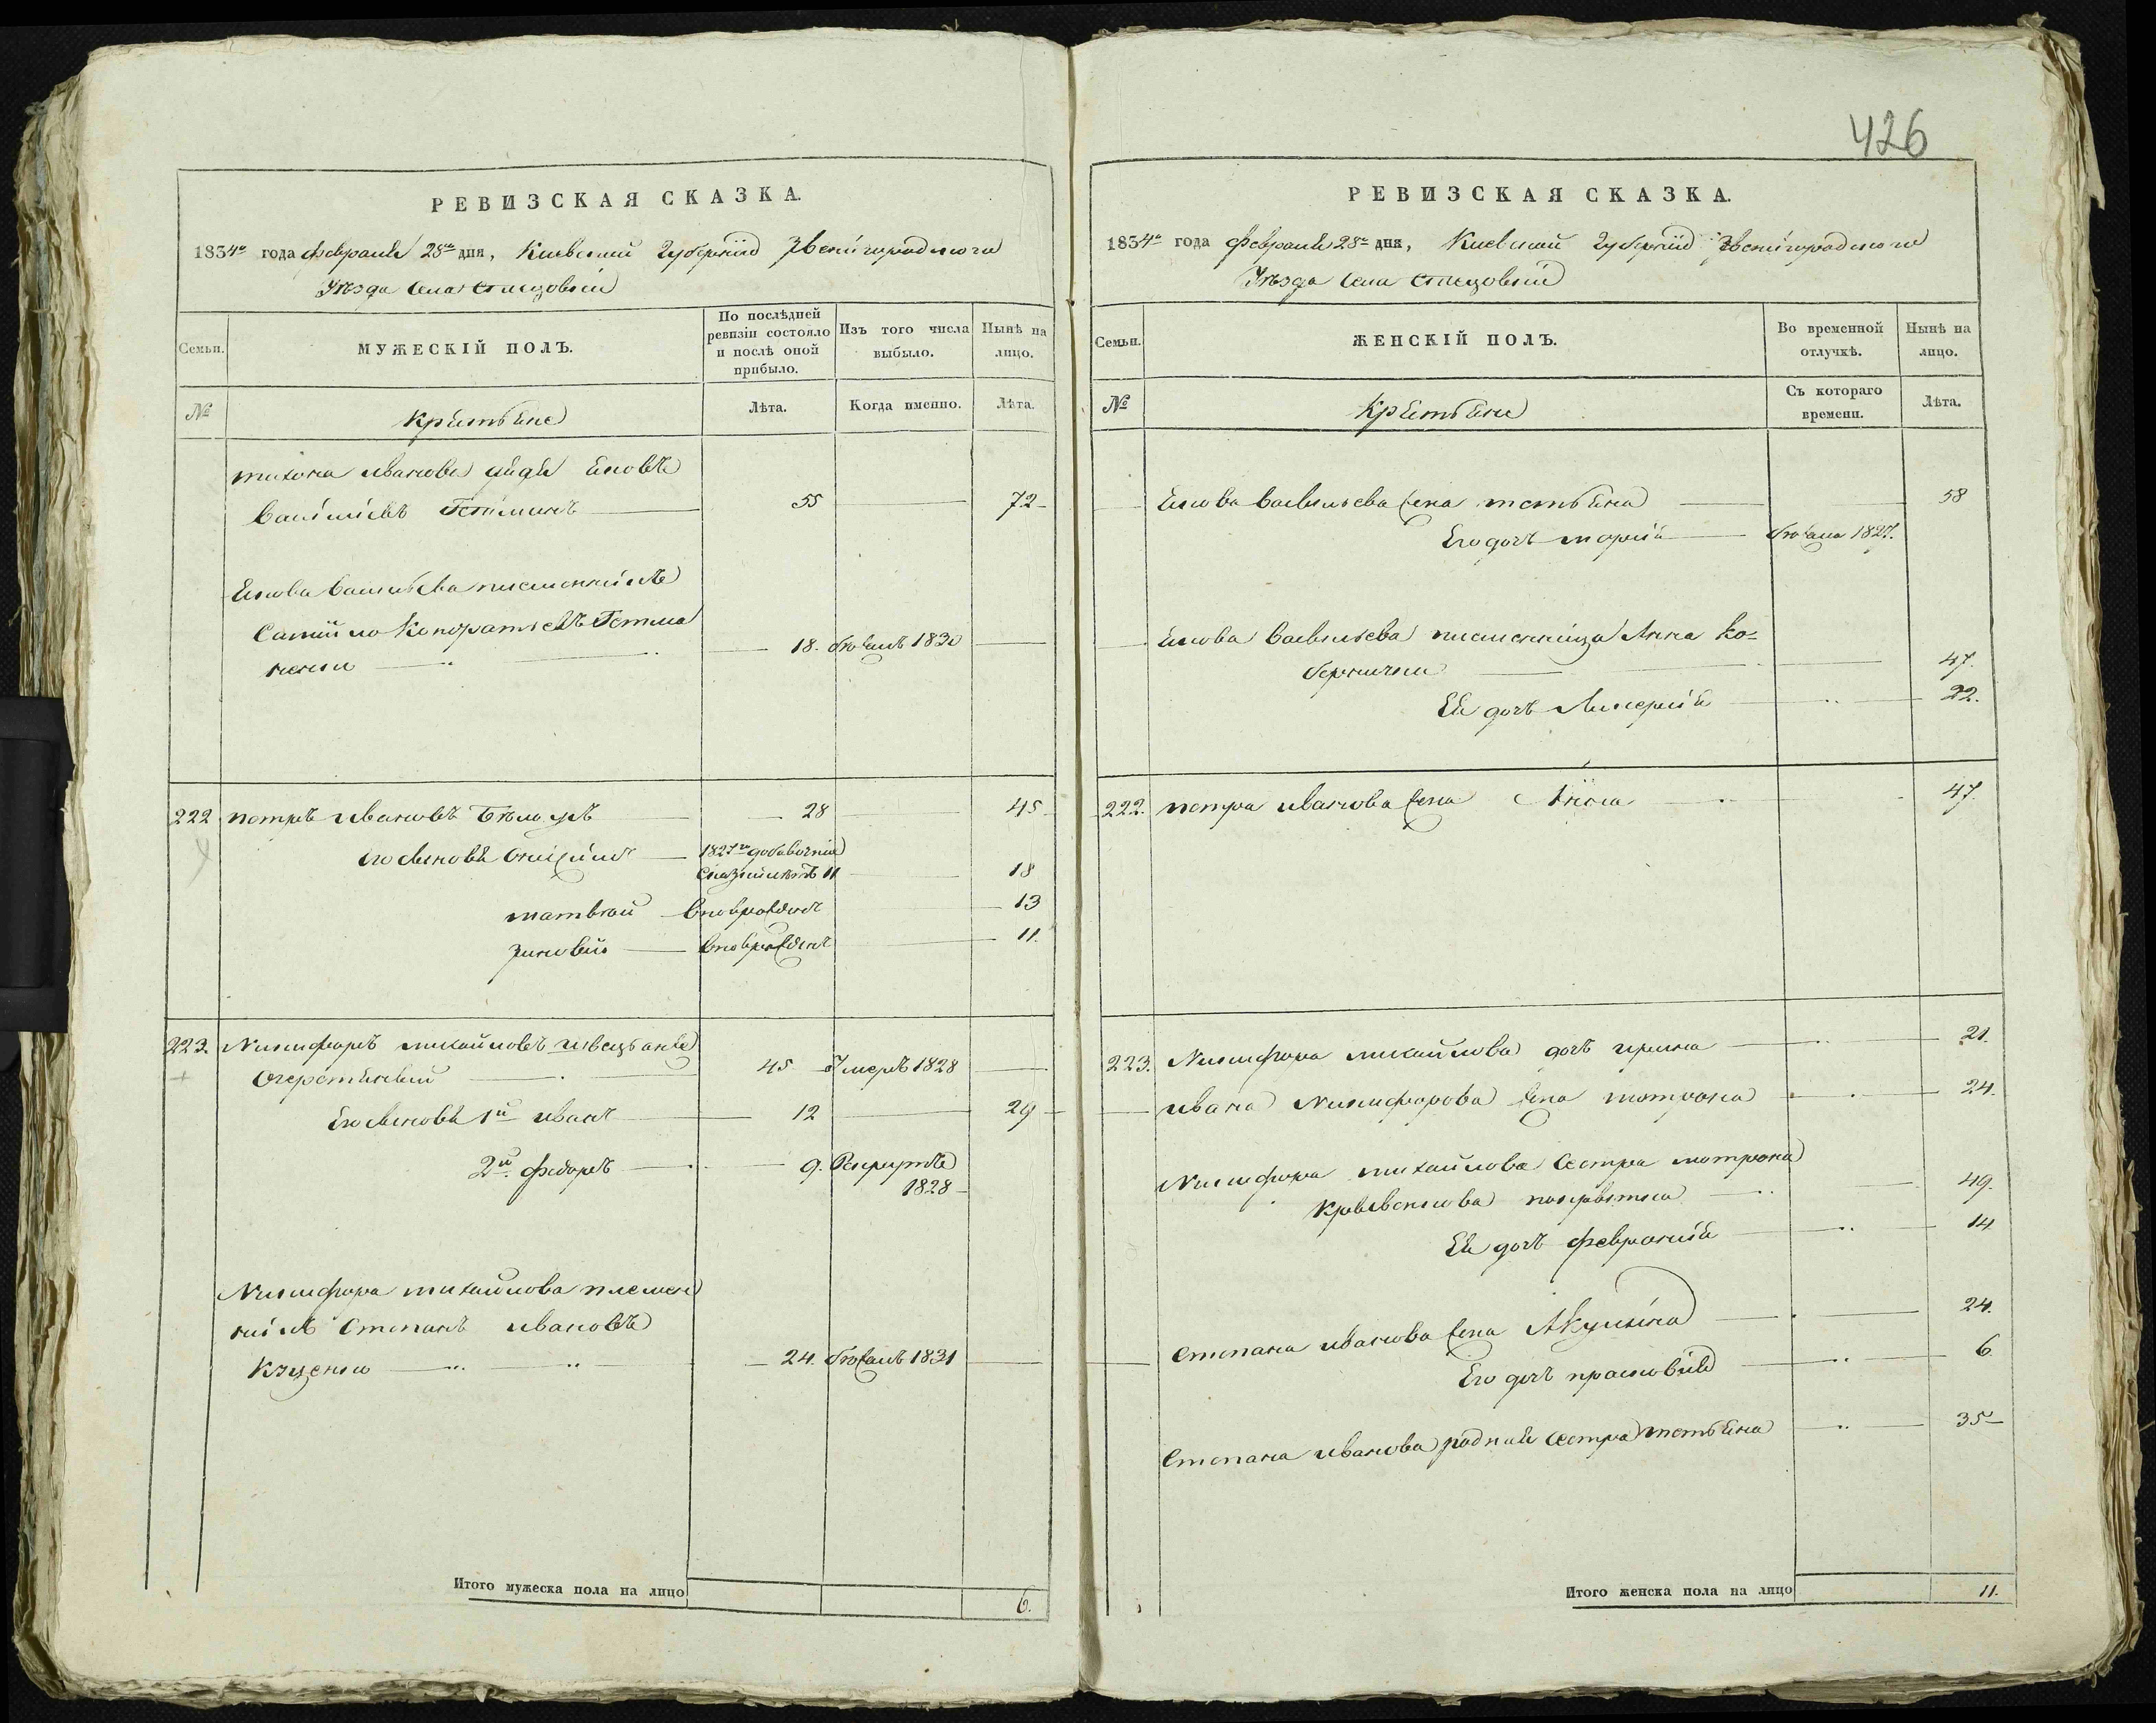 426
РЕВИЗСКАЯ СКАЗКА.
1834го года февраля 28го дня, Киевской Губернии Звенигородского
Уезда села Стецовки
Семьи.
МУЖЕСКІЙ ПОЛЪ.
По послѣдней ревизіи состояло и послѣ оной прибыло.
Изъ того числа выбыло.
Нынѣ на лицо.
№
Крестьяне
Лѣта.
Когда именно.
Лѣта.
тихона иванова дядя Яковъ
Василиевъ Гетманъ 55 72
Якова Васильева племенникъ
Самойло Кондратьевъ Гетма
ненко 18. бежалъ 1830
222 петръ ивановъ 28 45
его сыновья 1827го добавочной
сказкой 11 18
матвей вновьрожденъ 13
зиновій вновьрожденъ 11.
223. Никифоръ михайловъ
45 Умеръ 1828
Его сыновья 1й иванъ 12 29
2й федоръ 9. Рекрутъ
1828
Никифора михайлова племен
никъ Степанъ ивановъ
Куценко 24. бежалъ 1831
Итого мужеска пола на лицо 6.
РЕВИЗСКАЯ СКАЗКА.
1834го года февраля 28го дня, Киевской Губерніи Звенигородского
Уезда села Стецовки
Семьи.
ЖЕНСКІЙ ПОЛЪ.
Во временной отлучкѣ.
Нынѣ на лицо.
№
Крестьяне
Съ котораго времени.
Лѣта.
Якова Васильева жена тетьяна 58
Его дочь марія бежала 1827.
Якова Васильева племенница Анна Ко-
47.
Ея дочь Ликерія 22.
222. петра иванова жена Анна 47
223. Никифора михайлова дочь ирина 21.
ивана Никифорова жена мотрона 24.
Никифора михайлова сестра мотрона
49.
Ея дочь февронія 14
Степана иванова жена Акулина 24.
Его дочь прасковія 6
Степана иванова родная сестра тетьяна 35
Итого женска пола на лицо 11.